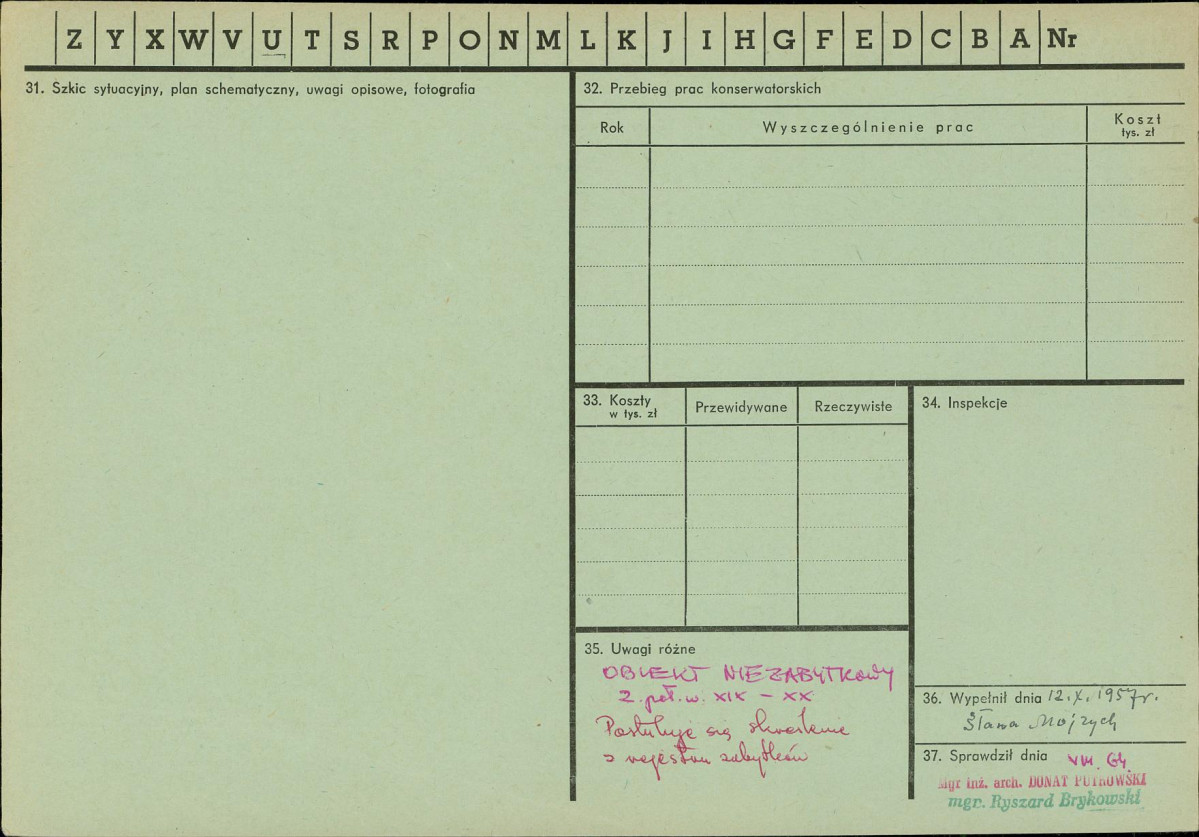 Z Y X W V U T S R P O N M L K J I H G F E D C B A Nr
31. Szkic sytuacyjny, plan schematyczny, uwagi opisowe, fotografia
32. Przebieg prac konserwatorskich
Rok
Wyszczególnienie prac
Koszt
tys. zł
33. Koszty
w tys. zł
Przewidywane
Rzeczywiste
34. Inspekcje
35. Uwagi różne
OBIEKT NIEZABYTKOWY
2. poł. w. XIX – XX
Postuluje się skreślenie
z rejestru zabytków
36. Wypełnił dnia 12.X.1957r.
Sława Mojzych
37. Sprawdził dnia VIII. 64.
mgr inż. arch. DONAT PUTKOWSKI
mgr. Ryszard Brykowski